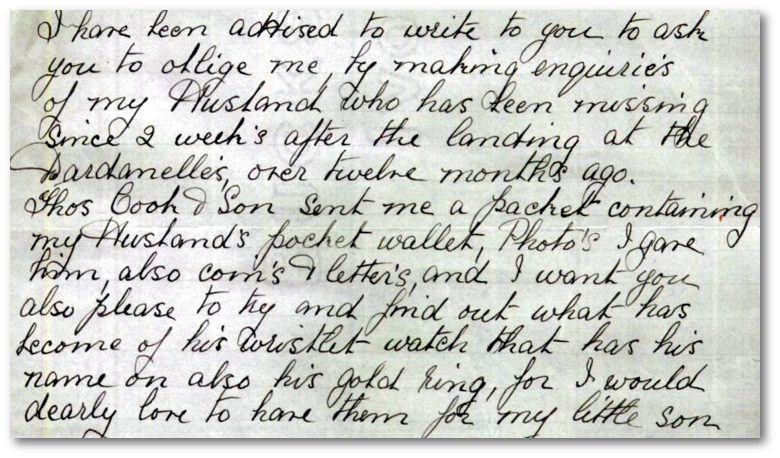 I have been advised to write to you to ask
you to oblige me, by making enquirie's
of my Husband who has been missing
since 2 week's after the landing at the
Dardanelle's, over twelve months ago.
Thos Cook & Son sent me a packet containing
my Husband's pocket wallet, Photo's I gave
him, also coin's & letter's, and I want you
also please to try and find out what has
become of his wristlet watch that has his
name on also his gold ring, for I would
dearly love to have them for my little son